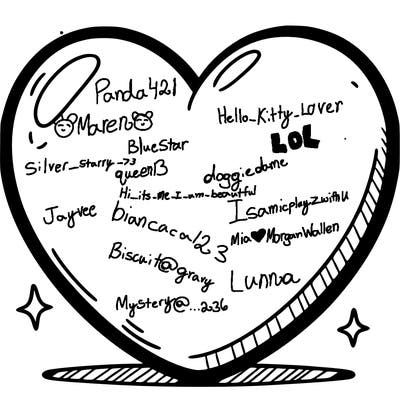 Panda421
Hello_Kitty_Lover
Maren
BlueStar
LOL
Silver_starry_73
queenB
doggiedame
Hi_its_me_I_am_beautful
Jayvee
biancaca1223
Isamicplayzwithu
Mia♥MorganWallen
Biscuit@gravy
Lunna
Mystery@...2036